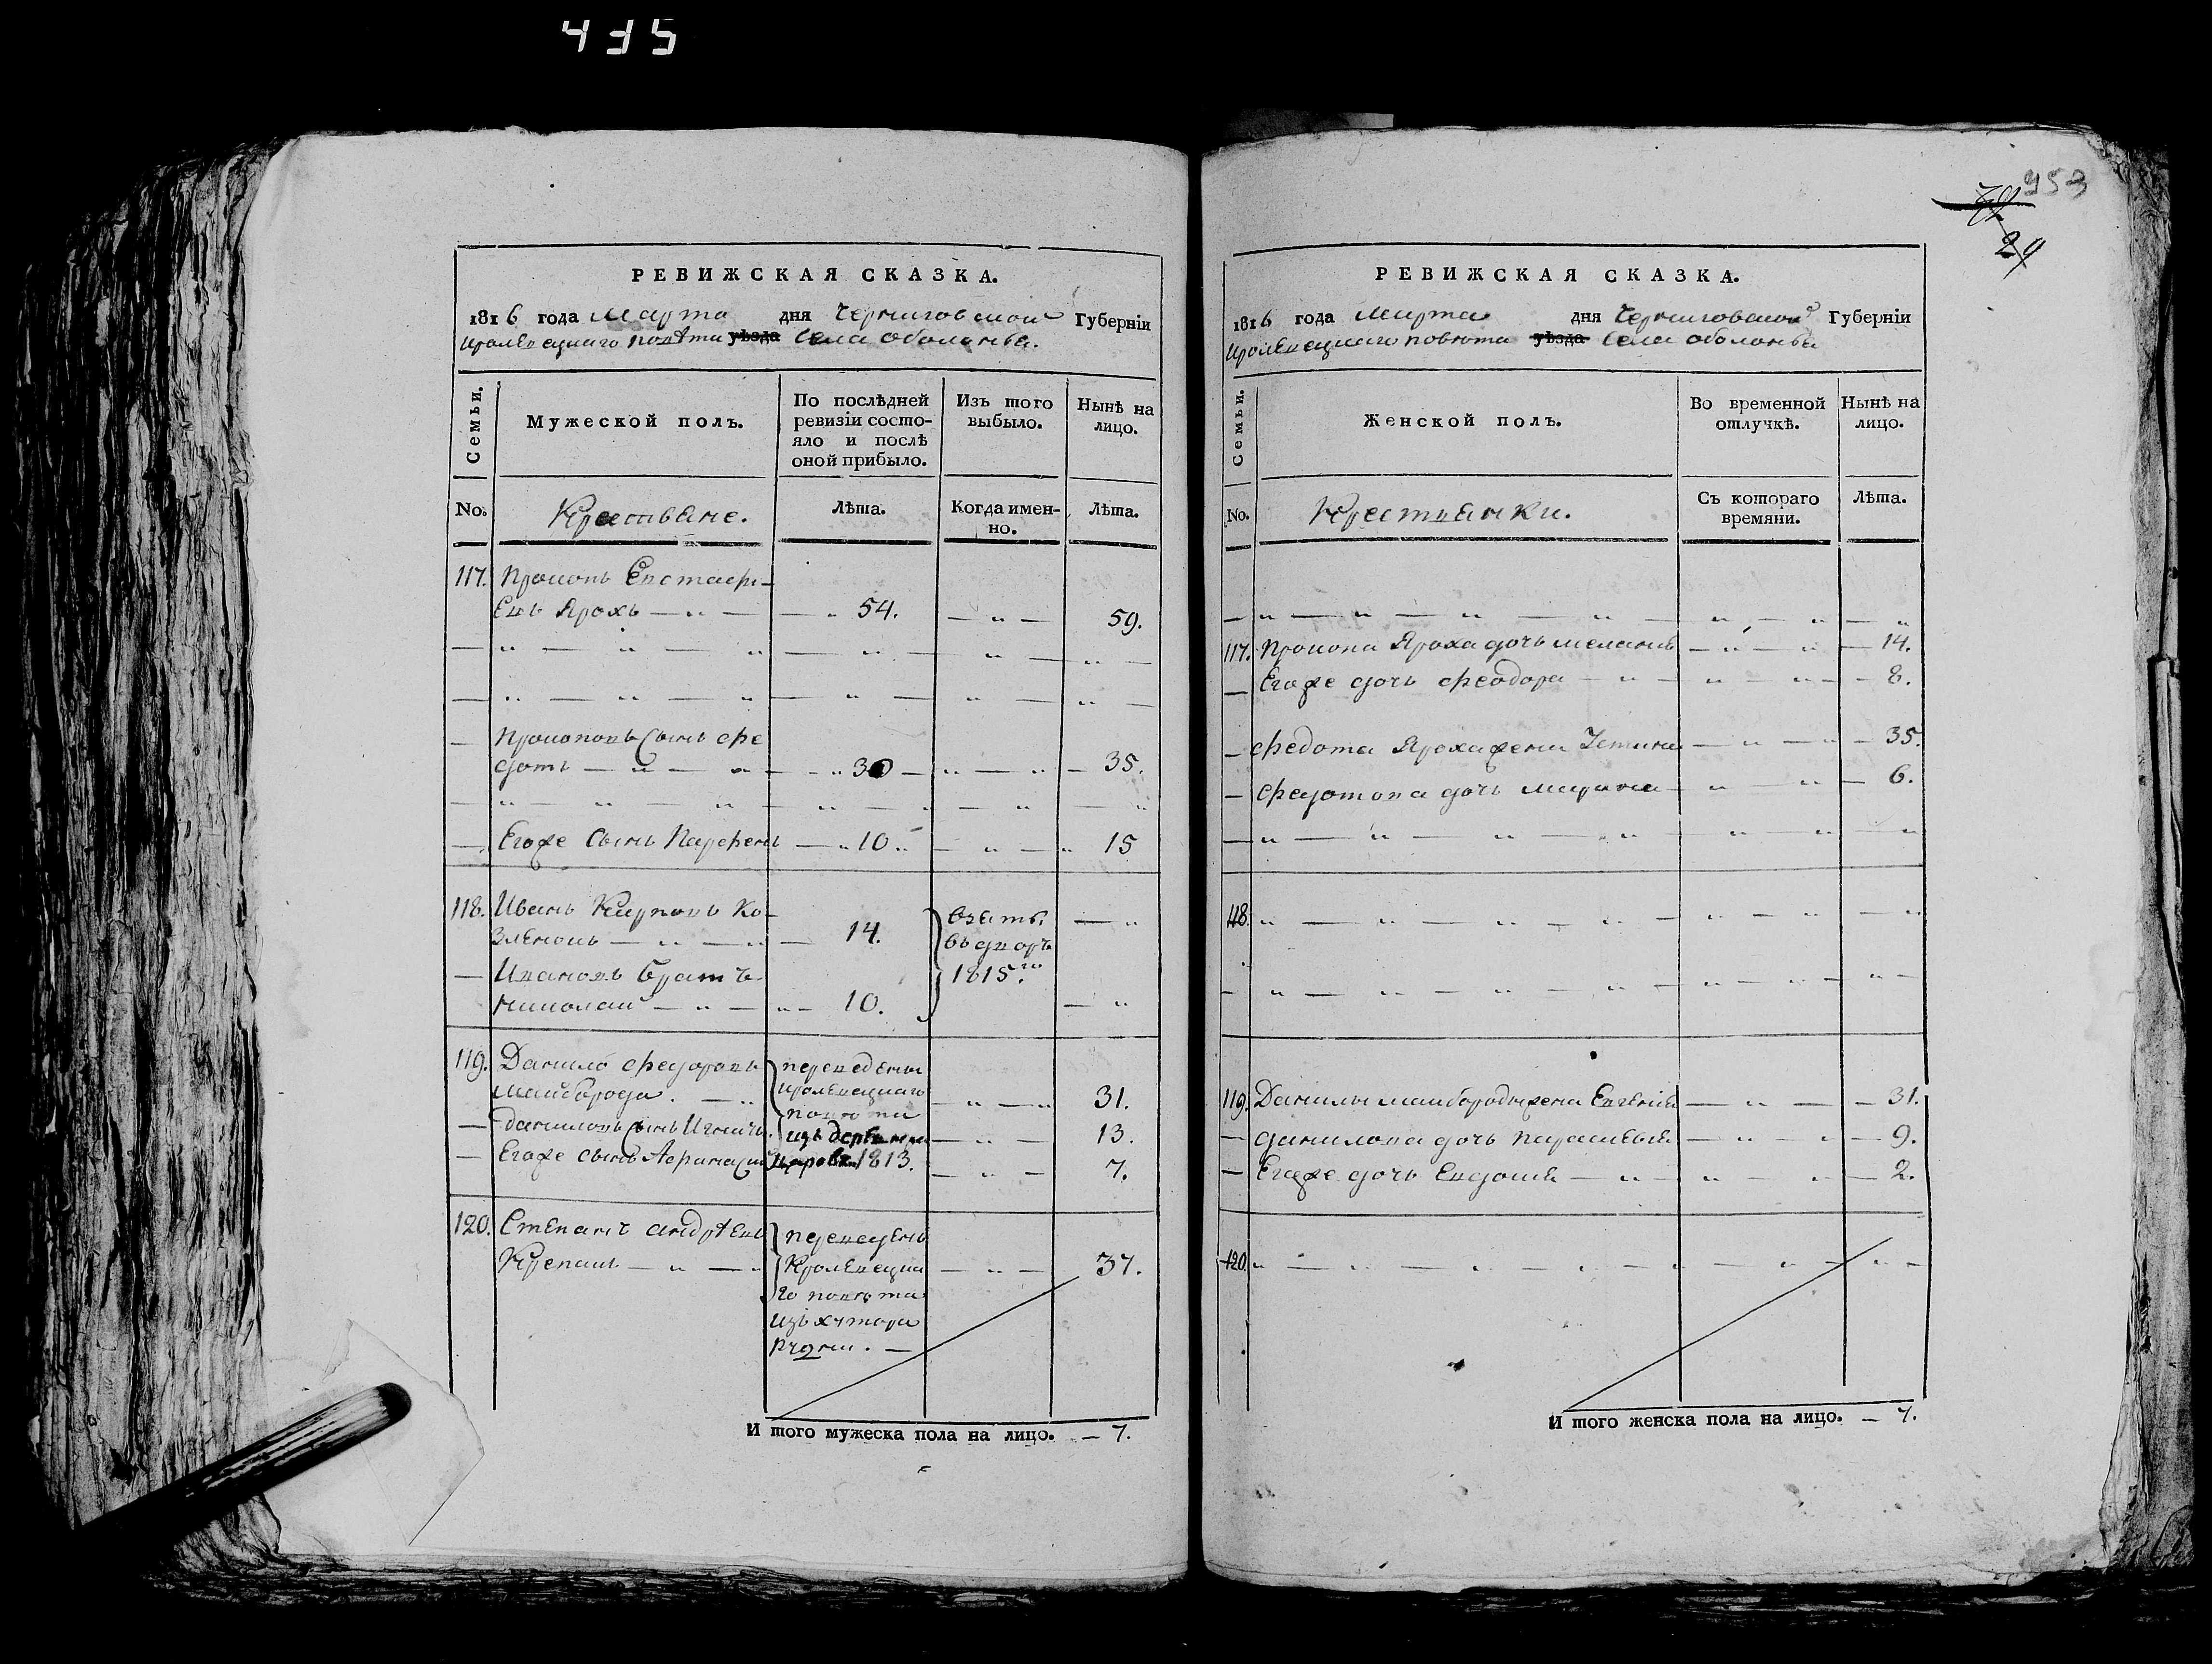 435
РЕВИЖСКАЯ СКАЗКА.
1816 года Марта дня Черниговской Губерніи
Кролевецкаго повѣта уѣзда Села Оболонья.
Семьи.
Мужеской полъ.
По послѣдней ревизіи состояло и послѣ оной прибыло.
Изъ того выбыло.
Нынѣ на лицо.
No.
Крестьяне.
Лѣта.
Когда именно.
Лѣта.
117. Прокопъ Евстафи-
евъ Ярохъ 54. 59.
Прокоповъ сынъ Фе
дотъ 30 35.
Егоже сынъ Парфенъ 10 15
118. Иванъ Карповъ Ко-
зленокъ 14. взяты
въ дворъ
Ивановъ братъ 1815го
Николай 10.
119. Данило Федоровъ переведены
Майборода. Кролевецкаго 31.
повѣта
Даниловъ сынъ Игнатъ изъ деревни 13.
Егоже сынъ Афанасій 1813. 7.
120. Степанъ Андрѣевъ переведенъ
Крепакъ Кролевецка 37.
го повѣта
изъ хутора
Рудни.
И того мужеска пола на лицо. 7.
953
29
РЕВИЖСКАЯ СКАЗКА.
1816 года Марта дня Черниговской Губерніи
Кролевецкаго повѣта уѣзда Села Оболонья
Семьи.
Женской полъ.
Во временной отлучкѣ.
Нынѣ на лицо.
No.
Крестьянки.
Съ котораго времяни.
Лѣта.
117. Прокопа Яроха дочь Меланья 14.
Егоже дочь Феодора 8.
Федота Яроха жена Устина 35.
Федотова дочь Марина 6.
118.
119. Данилы Майбороды жена Евгенія 31.
Данилова дочь Парасковья 9.
Егоже дочь Евдокія 2.
120.
И того женска пола на лицо. 7.